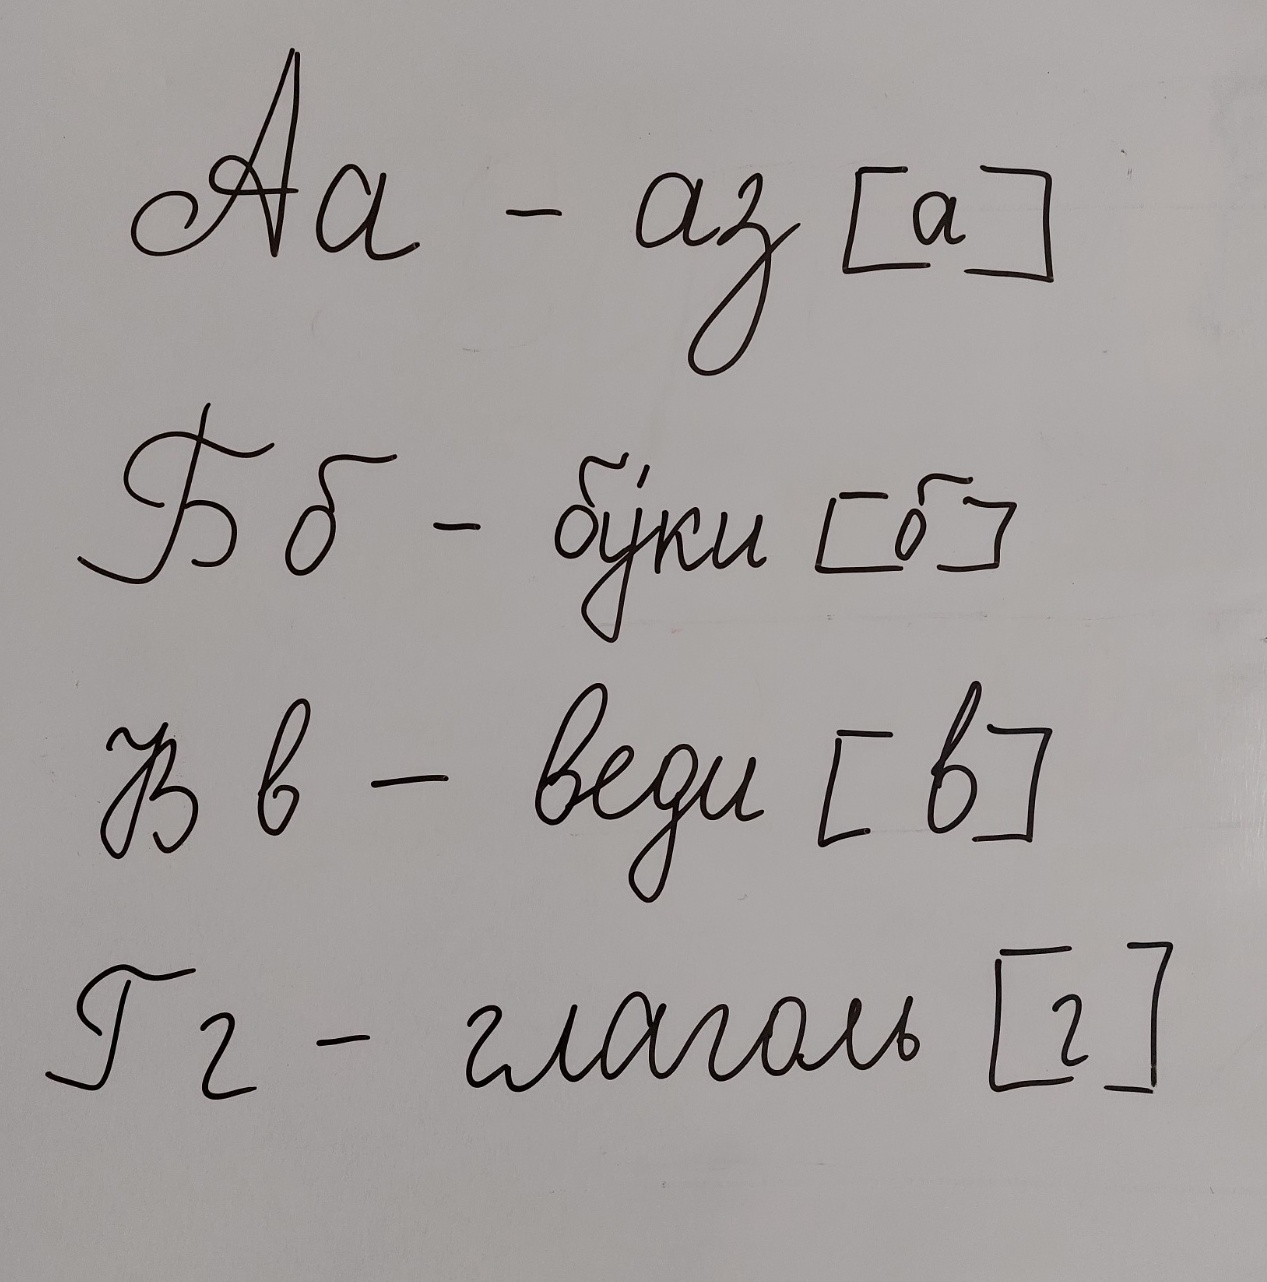 Аа - аз [а]
Б б - бу́ки [б]
В в - веди [в]
Г г - глаголь [г]